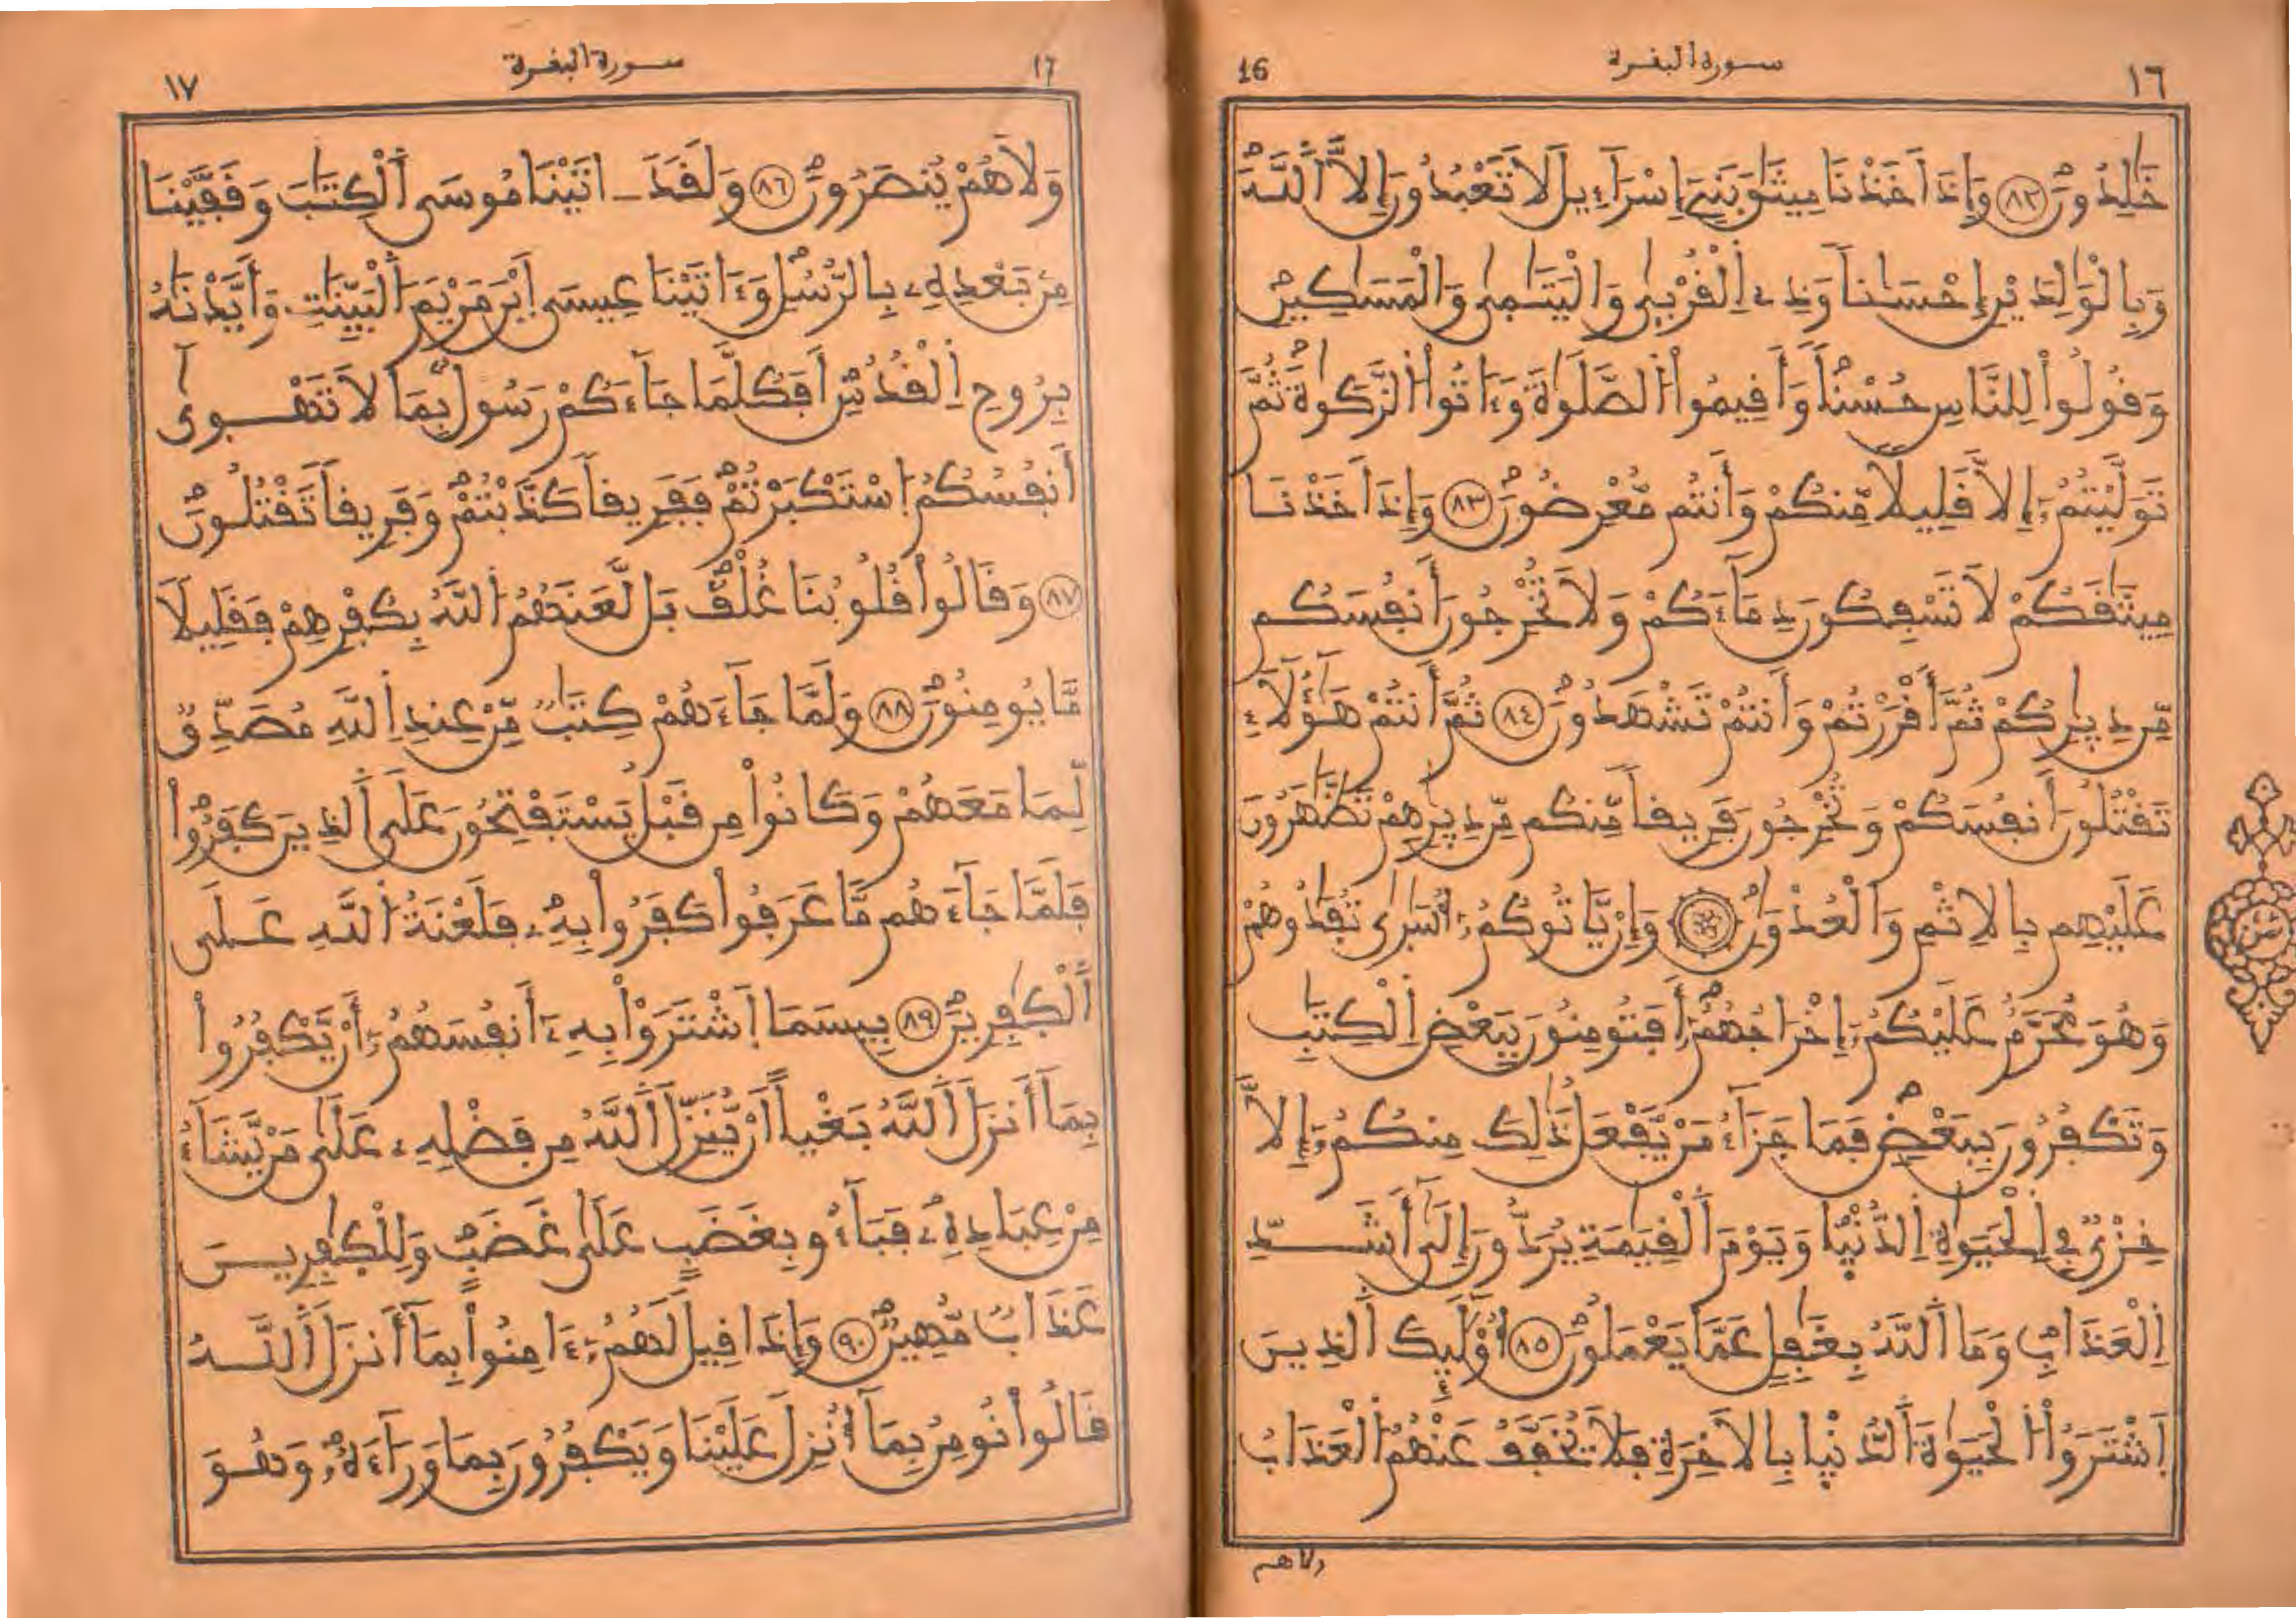 ١٦ سورة البفرة 16
خَٰلِدُونَ ٨٢ وَإِذَ اَخَذْنَا مِيثَٰقَ بَنِےٓ إِسْرَآءِيلَ لَا تَعْبُدُونَ إِلَّا اَللَّهَ
وَبِالْوَٰلِدَيْنِ إِحْسَاناً وَذِے اِلْقُرْبَىٰ وَالْيَتَٰمَىٰ وَالْمَسَٰكِينِ
وَقُولُواْ لِلنَّاسِ حُسْناً وَأَقِيمُواْ اُلصَّلَوٰةَ وَءَاتُواْ اُلزَّكَوٰةَ ثُمَّ
تَوَلَّيْتُمُۥٓ إِلَّا قَلِيلًا مِّنكُمْ وَأَنتُم مُّعْرِضُونَ ٨٣ وَإِذَ اَخَذْنَا
مِيثَٰقَكُمْ لَا تَسْفِكُونَ دِمَآءَكُمْ وَلَا تُخْرِجُونَ أَنفُسَكُم
مِّن دِيٰرِكُمْ ثُمَّ أَقْرَرْتُمْ وَأَنتُمْ تَشْهَدُونَ ٨٤ ثُمَّ أَنتُمْ هَٰٓؤُلَآءِ
تَقْتُلُونَ أَنفُسَكُمْ وَتُخْرِجُونَ فَرِيقاً مِّنكُم مِّن دِيٰرِهِمْ تَظَّٰهَرُونَ
عَلَيْهِم بِالْاِثْمِ وَالْعُدْوَٰنِ وَإِنْ يَّاتُوكُمُۥٓ أُسَٰرَىٰ تُفَٰدُوهُمْ
وَهُوَ مُحَرَّمٌ عَلَيْكُمُۥٓ إِخْرَاجُهُمُۥٓ أَفَتُومِنُونَ بِبَعْضِ اِلْكِتَٰبِ
وَتَكْفُرُونَ بِبَعْضٍ فَمَا جَزَآءُ مَنْ يَّفْعَلُ ذَٰلِكَ مِنكُمُۥٓ إِلَّا
خِزْيٌ فِے اِلْحَيَوٰةِ اِلدُّنْيٰا وَيَوْمَ اَلْقِيَٰمَةِ يُرَدُّونَ إِلَىٰٓ أَشَدِّ
اِلْعَذَابِ وَمَا اَللَّهُ بِغَٰفِلٍ عَمَّا يَعْمَلُونَ ٨٥ أُوْلَٰٓئِكَ اَلذِينَ
اَشْتَرَوُاْ اُلْحَيَوٰةَ اَلدُّنْيٰا بِالَاخِرَةِ فَلَا يُخَفَّفُ عَنْهُمُ اُلْعَذَابُ
ولاهم
ثمن
١٧ سورة البفرة 17
وَلَا هُمْ يُنصَرُونَ ٨٦ وَلَقَدَ ـ اتَيْنَا مُوسَى اَلْكِتَٰبَ وَقَفَّيْنَا
مِنۢ بَعْدِهِۦ بِالرُّسُلِ وَءَاتَيْنَا عِيسَى اَبْنَ مَرْيَمَ اَلْبَيِّنَٰتِ وَأَيَّدْنَٰهُ
بِرُوحِ اِلْقُدُسِ أَفَكُلَّمَا جَآءَكُمْ رَسُولٌۢ بِمَا لَا تَهْوَىٰٓ
أَنفُسُكُمُ اُسْتَكْبَرْتُمْ فَفَرِيقاً كَذَّبْتُمْ وَفَرِيقاً تَقْتُلُونَ
٨٧ وَقَالُواْ قُلُوبُنَا غُلْفٌ بَل لَّعَنَهُمُ اُللَّهُ بِكُفْرِهِمْ فَقَلِيلًا
مَّا يُومِنُونَ ٨٨ وَلَمَّا جَآءَهُمْ كِتَٰبٌ مِّنْ عِندِ اِللَّهِ مُصَدِّقٌ
لِّمَا مَعَهُمْ وَكَانُواْ مِن قَبْلُ يَسْتَفْتِحُونَ عَلَى اَلذِينَ كَفَرُواْ
فَلَمَّا جَآءَهُم مَّا عَرَفُواْ كَفَرُواْ بِهِۦ فَلَعْنَةُ اُللَّهِ عَلَى
اَلْكٰفِرِينَ ٨٩ بِيسَمَا اَشْتَرَوْاْ بِهِۦٓ أَنفُسَهُمُۥٓ أَنْ يَّكْفُرُواْ
بِمَآ أَنزَلَ اَللَّهُ بَغْياً اَنْ يُّنَزِّلَ اَللَّهُ مِن فَضْلِهِۦ عَلَىٰ مَنْ يَّشَآءُ
مِنْ عِبَادِهِۦ فَبَآءُو بِغَضَبٍ عَلَىٰ غَضَبٍ وَلِلْكٰفِرِينَ
عَذَابٌ مُّهِينٌ ٩٠ وَإِذَا قِيلَ لَهُمُۥٓ ءَامِنُواْ بِمَآ أَنزَلَ اَللَّهُ
قَالُواْ نُومِنُ بِمَآ أُنزِلَ عَلَيْنَا وَيَكْفُرُونَ بِمَا وَرَآءَهُۥ وَهُوَ